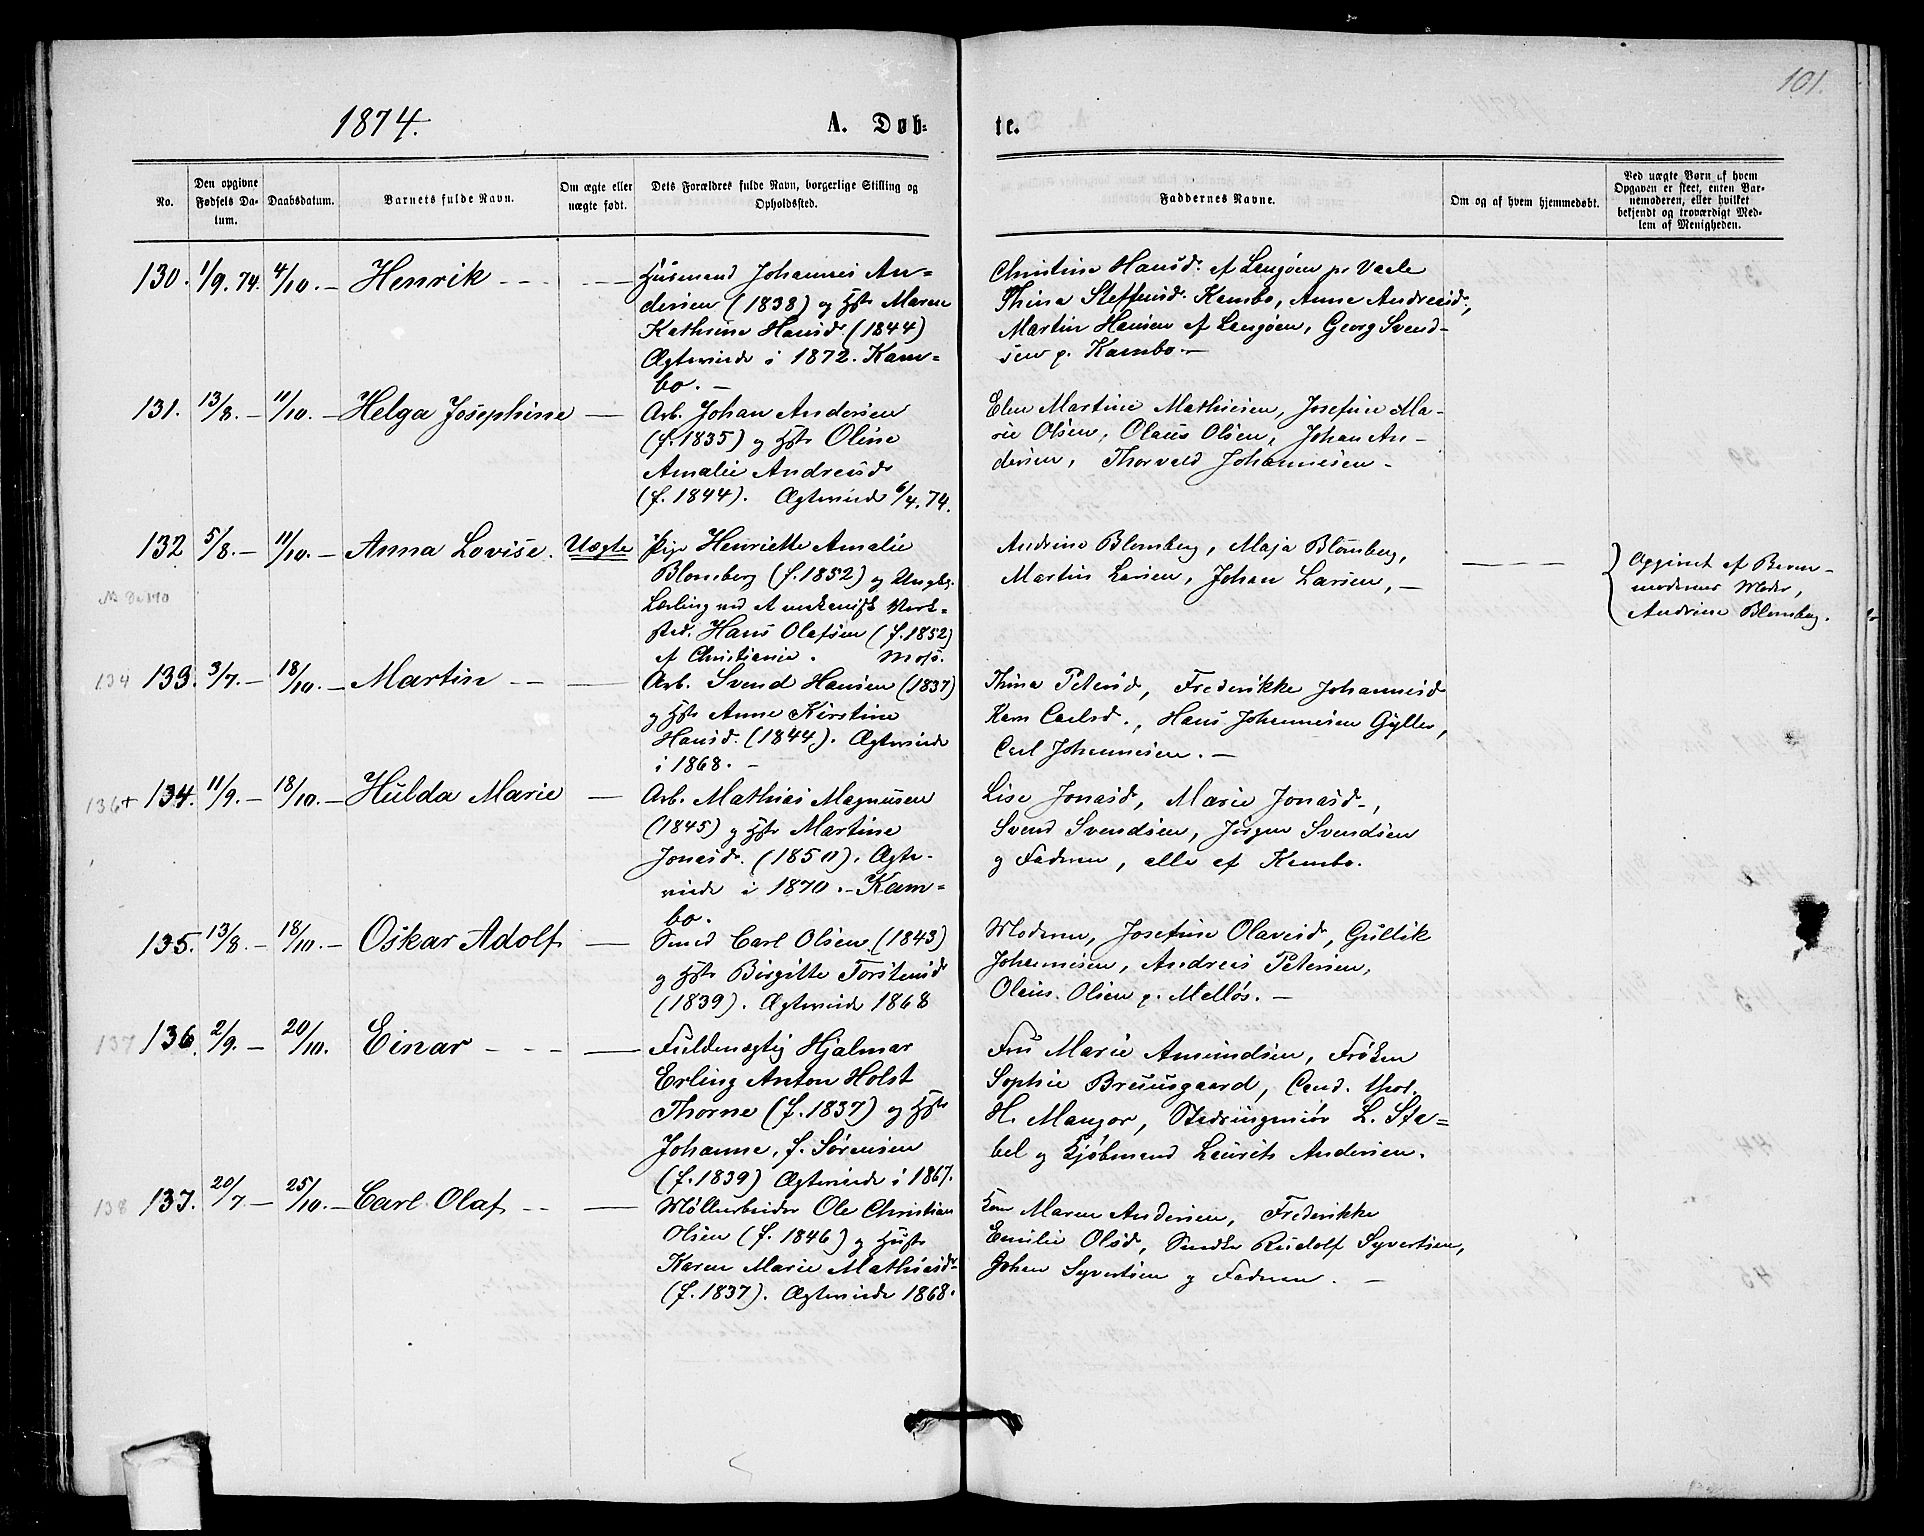 101.
1874.
A. Døb-
te.
No.
Den opgivne Fødsels Datum.
Daabsdatum.
Barnets fulde Navn.
Om ægte eller uægte født.
Dets Forældres fulde Navn, borgerlige Stilling og Opholdssted.
Faddernes Navne.
Om og af hvem hjemmedøbt.
Ved uægte Børn af hvem Opgaven er skeet, enten Barnemoderen, eller hvilket bekjendt og troværdigt Medlem af Menigheden.
130. 1/9. 74. 4/10. – Henrik – – – – –
Husmand Johannes An-
dersen (1838) og Hst Maren
Kathrine Hansd. (1844)
Ægteviede i 1872. Kam-
bo. –
Christine Hansd. af Længøen pr Vaale
Thina Steffensd. Kambo, Anne Andreasd.,
Martin Hansen af Længøen, Georg Svend-
sen p. Kambo. –
131. 13/8. – 11/10. – Helga Josephine –
Arb. Johan Andersen
(f. 1835) og Hst Oline
Amalie Andreasd.
(f. 1844). Ægteviede 6/4. 74.
Elen Martine Mathisen, Josefine Ma-
rie Olsen, Olaus Olsen, Johan An-
dersen, Thorvald Johannesen –
132 5/8. – 11/10. – Anna Lovise. Uægte
Pige Henriette Amalie
Blomberg (f. 1852) og Ungk.
Lærling ved et mekanisk Værk-
sted. Hans Olafsen (f. 1852)
af Christiania. Moss.
Andrine Blomberg, Maja Blomberg,
Martin Larsen, Johan Larsen, –
– – – –
Opgivet af Barne-
moderens Moder,
Andrine Blomberg.
134 133. 3/7. – 18/10. – Martin – – –
Arb. Svend Hansen (1837)
og Hst Anne Kirstine
Hansd. (1844). Ægteviede
i 1868. –
Thina Petersd, Frederikke Johannesd
Karn Carlsd., Hans Johannesen Gylles,
Carl Johannesen. –
136+ 134. 11/9. – 18/10. – Hulda Marie –
Arb. Mathias Magnusen
(1845) og Hst Martine
Jonasd. (1850). Ægte-
viede i 1870. – Kam-
bo.
Lise Jonasd, Marie Jonasd.,
Svend Svendsen, Jørgen Svendsen
og Faderen, alle af Kambo.
135. 13/8. – 18/10. – Oskar Adolf –
Smed Carl Olsen (1843)
og Hst Birgitte Torstensd
(1839). Ægteviede 1868
Moderen, Josefine Olavesd, Gullik
Johannesen, Andreas Petersen,
Olaus Olsen p. Melløs. –
137 136. 2/9. – 20/10. Einar – – – –
Fuldmægtig Hjalmar
Erling Anton Holst
Thorne (f. 1837) og Hst
Johanne, f. Sørensen
(f. 1839) Ægteviede i 1867.
Fru Marie Amundsen, Frøken
Sophie Bruusgaard, Cand. theol.
H. Manzor, Stadsingeniør L. Sta-
bel og Kjøbmand Laurits Andersen.
138 137. 20/7. – 25/10. – Carl Olaf – – –
Møllearbeider Ole Christian
Olsen (f. 1846) og Hust
Karen Marie Mathiasd.
(f. 1837). Ægteviede 1868.
Maren Andersen, Frederikke
Emilie Olsd, Rudolf Syvertsen,
Johan Syvertsen og Faderen. –